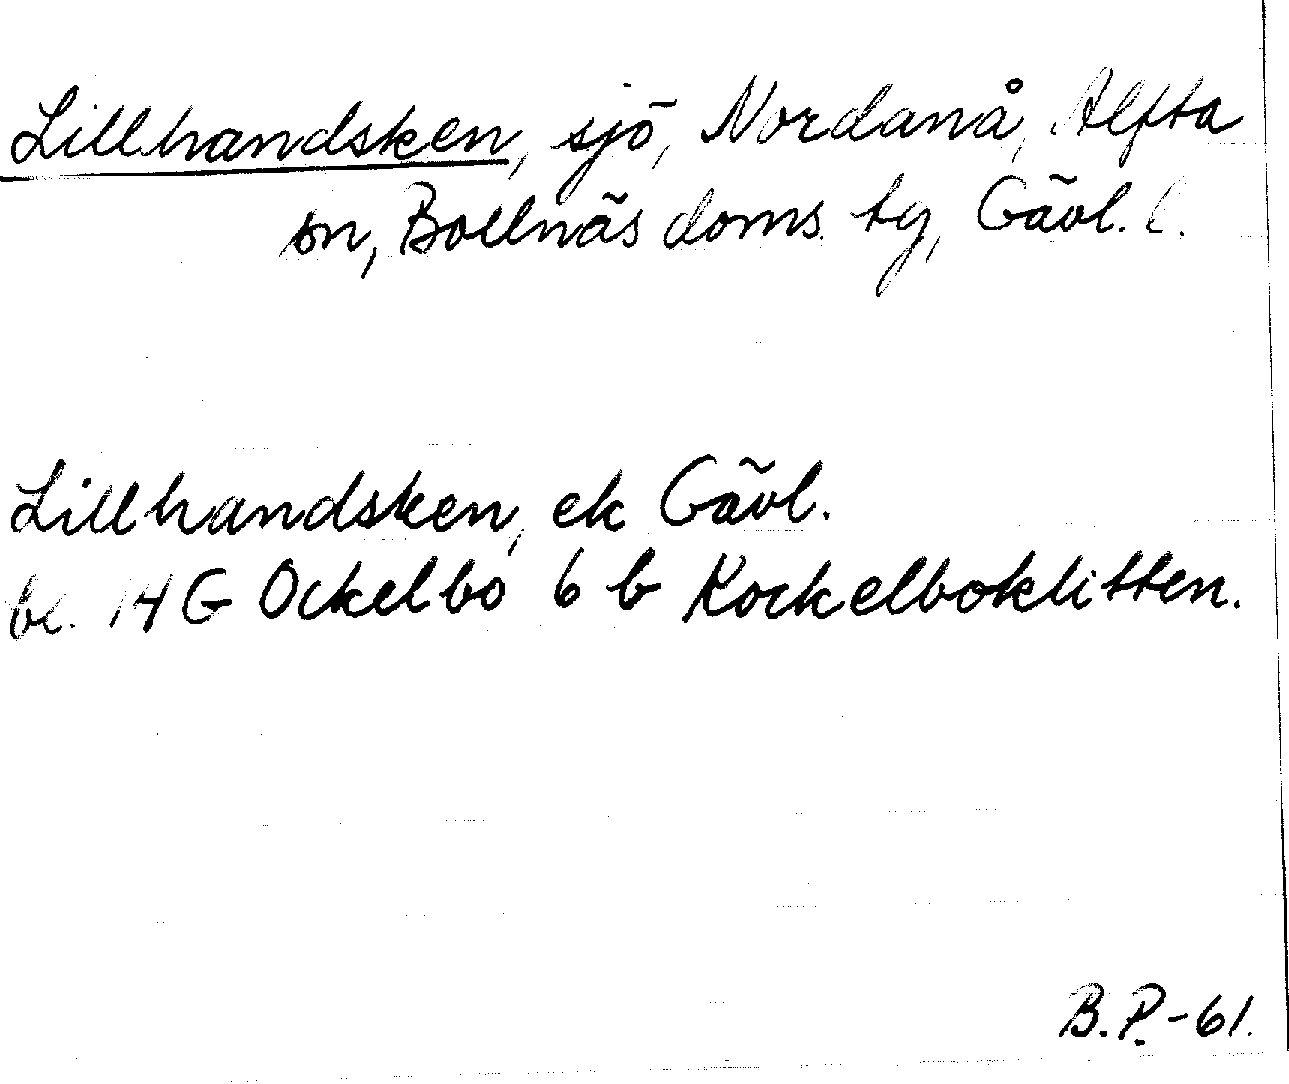 Lillhandsken, sjö, Nordanå, Alfta
sn, Bollnäs doms. tg, Gävl. l.
Lillhandsken, ek Gävl.
bl. 14 G Ockelbo 6 b Kockelboklitten.
B.P.-61.